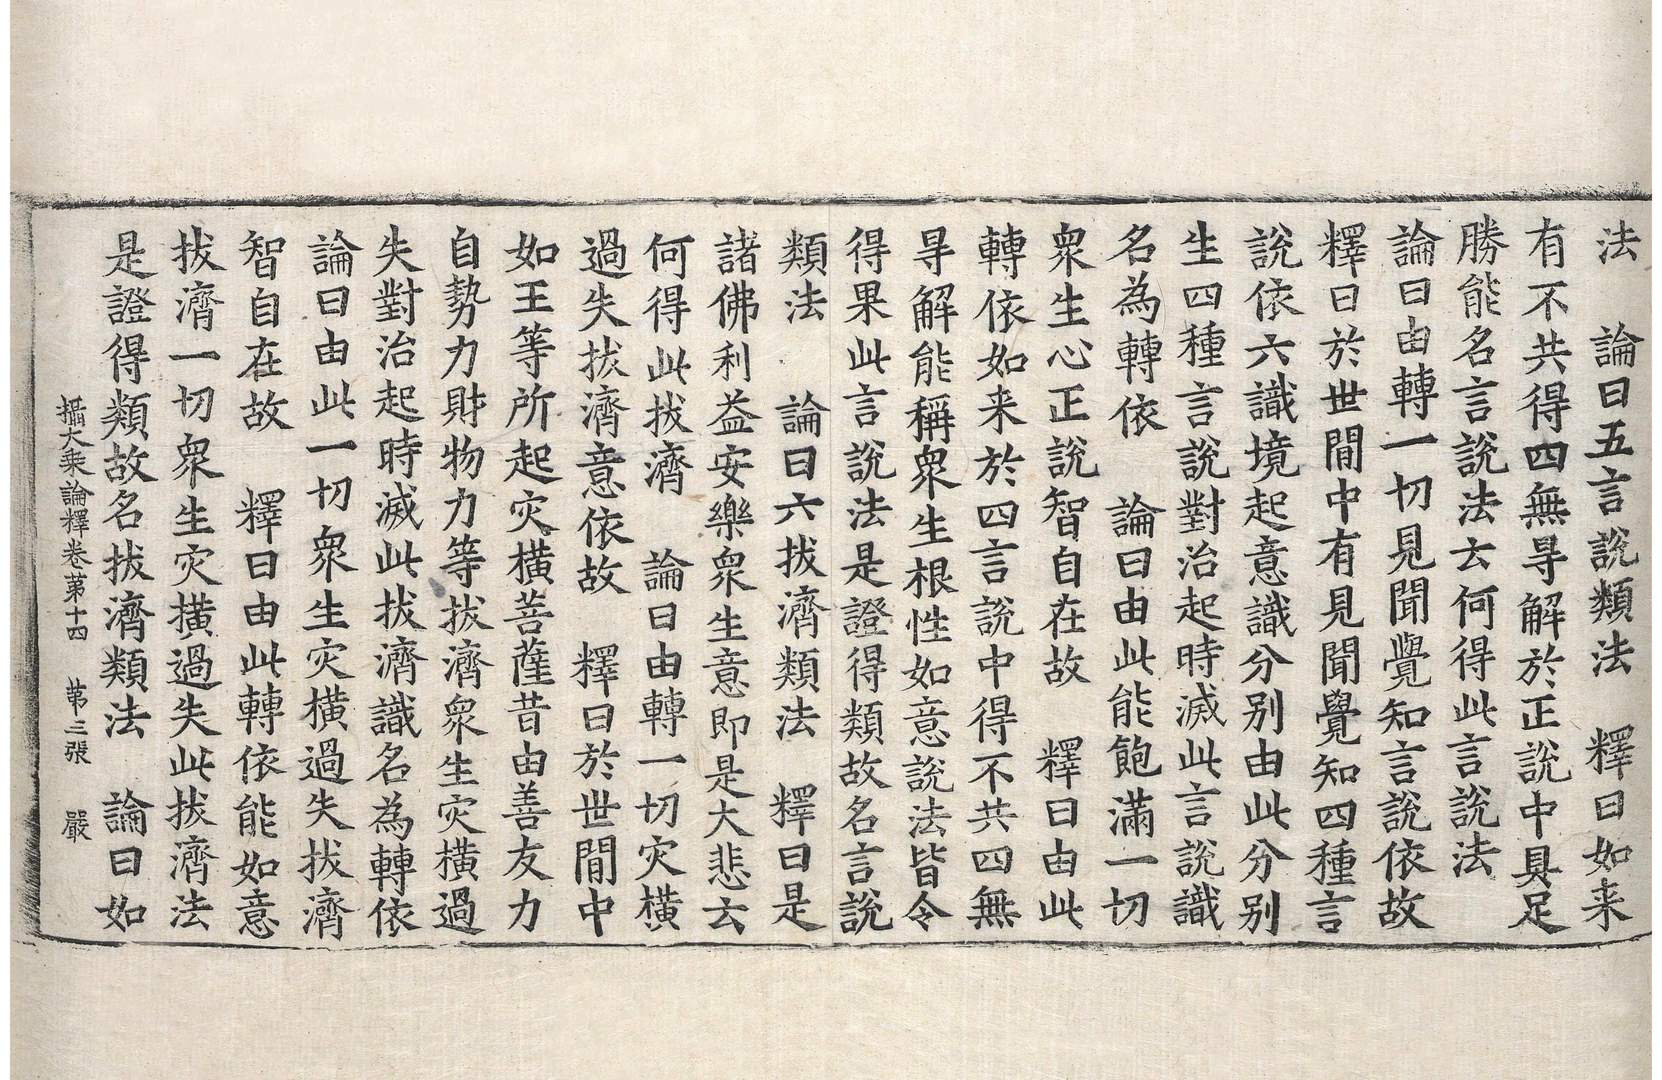 法　論曰五言說類法　釋曰如来
有不共得四無㝵解於正說中具足
勝能名言說法云何得此言說法
論曰由轉一切見聞覺知言說依故
釋曰於世間中有見聞覺知四種言
說依六識境起意識分別由此分別
生四種言說對治起時滅此言說識
名為轉依　論曰由此能飽滿一切
衆生心正說智自在故　釋曰由此
轉依如来於四言說中得不共四無
㝵解能稱衆生根性如意說法皆令
得果此言說法是證得類故名言說
類法　論曰六拔濟類法　釋曰是
諸佛利益安樂衆生意即是大悲云
何得此拔濟　論曰由轉一切灾橫
過失拔濟意依故　釋曰於世間中
如王等所起灾橫菩薩昔由善友力
自勢力財物力等拔濟衆生灾橫過
失對治起時滅此拔濟識名為轉依
論曰由此一切衆生灾橫過失拔濟
智自在故　釋曰由此轉依能如意
拔濟一切衆生灾橫過失此拔濟法
是證得類故名拔濟類法　論曰如
攝大乘論釋卷第十四　第三張　嚴